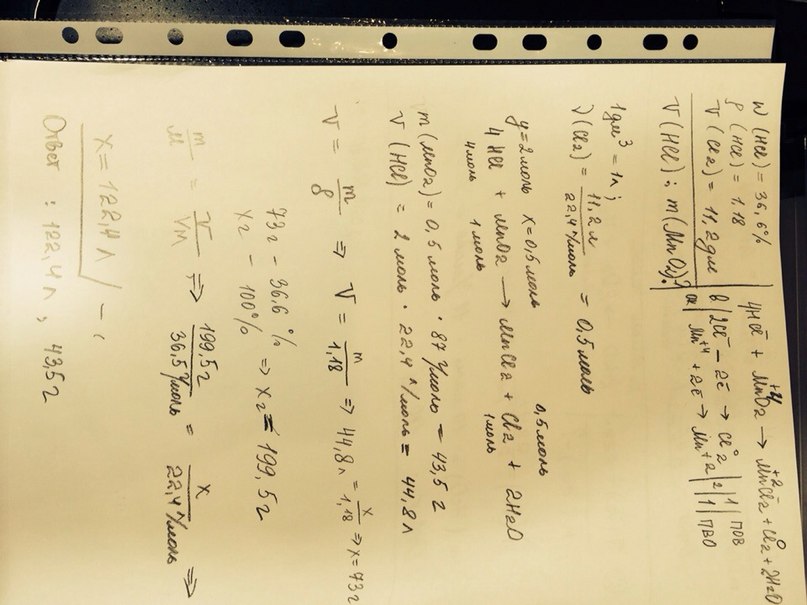 W (HCl) = 36,6%
ρ (HCl) = 1.18
V (Cl2) = 11,2 дм
V (HCl); m (MnO2)?
4HCl + MnO2 → MnCl2 + Cl2 + 2H2O
В | 2Cl - 2e → Cl2 | 2 | 1 | ПОВ
Ок | Mn+4 + 2e → Mn+2 | 2 | 1 | ПВО
1 дм3 = 1л;
ν (Cl2) = 11,2 л / 22,4 л/моль = 0,5 моль
y=2моль x=0,5моль 0,5 моль
4 HCl + MnO2 → MnCl2 + Cl2 + 2H2O
4моль 1 моль 1моль
m (MnO2) = 0,5 моль · 87 г/моль = 43,5 г
V (HCl) = 2 моль · 22,4 л/моль = 44,8 л
V = m/ρ => V = m/1,18 => 44,8л = x/1,18 => x=73г
73г - 36,6 %
xг - 100% => xг = 199,5г
m/M = V/VM => 199,5г / 36,5г/моль = x / 22,4 л/моль =>
x = 122,4 л
Ответ: 122,4 л; 43,5г